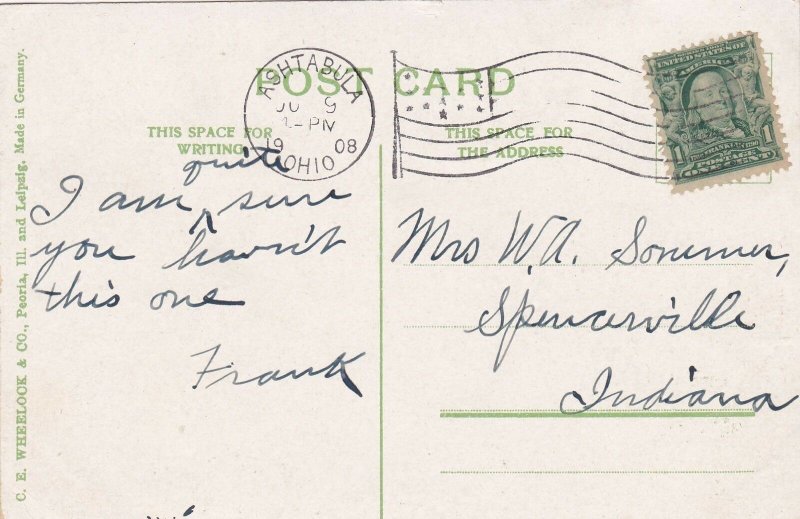 POST CARD
ASHTABULA
9
-PM
19 08
OHIO
THIS SPACE FOR
WRITING
THIS SPACE FOR
THE ADDRESS
UNITED STATES OF
AMERICA
1 1
POSTAGE
ONE CENT
quite
I am ^ sure
you havn't
this one
Frank
Mrs W.A. Sommer,
Spencerville
Indiana
C. E. WHEELOCK & CO., Peoria, Ill. and Leipzig. Made in Germany.